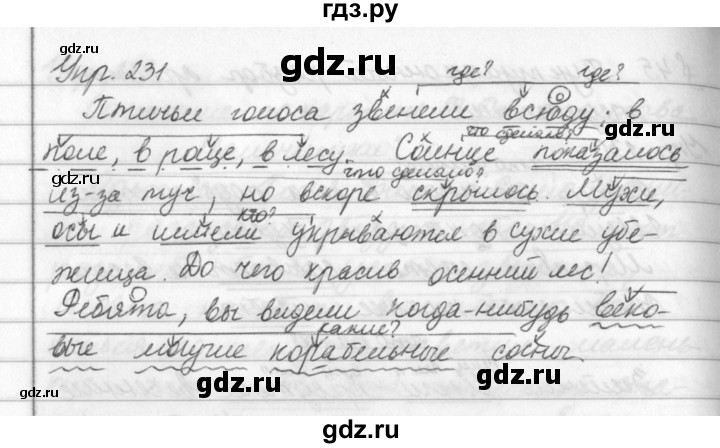 гдз.ру
gdz.ru gdz.ru
Упр. 231 где? где?
Птичьи голоса звенели всюду: в
что сделало?
поле, в роще, в лесу. Солнце показалось
gdz.ru gdz.ru
что сделало?
из-за туч, но вскоре скрылось. Мухи,
кто?
осы и шмели укрываются в сухие убе-
gdz.ru gdz.ru
жища. До чего красив осенний лес!
Ребята, вы видели когда-нибудь веко-
какие?
вые могучие корабельные сосны.
gdz.ru gdz.ru